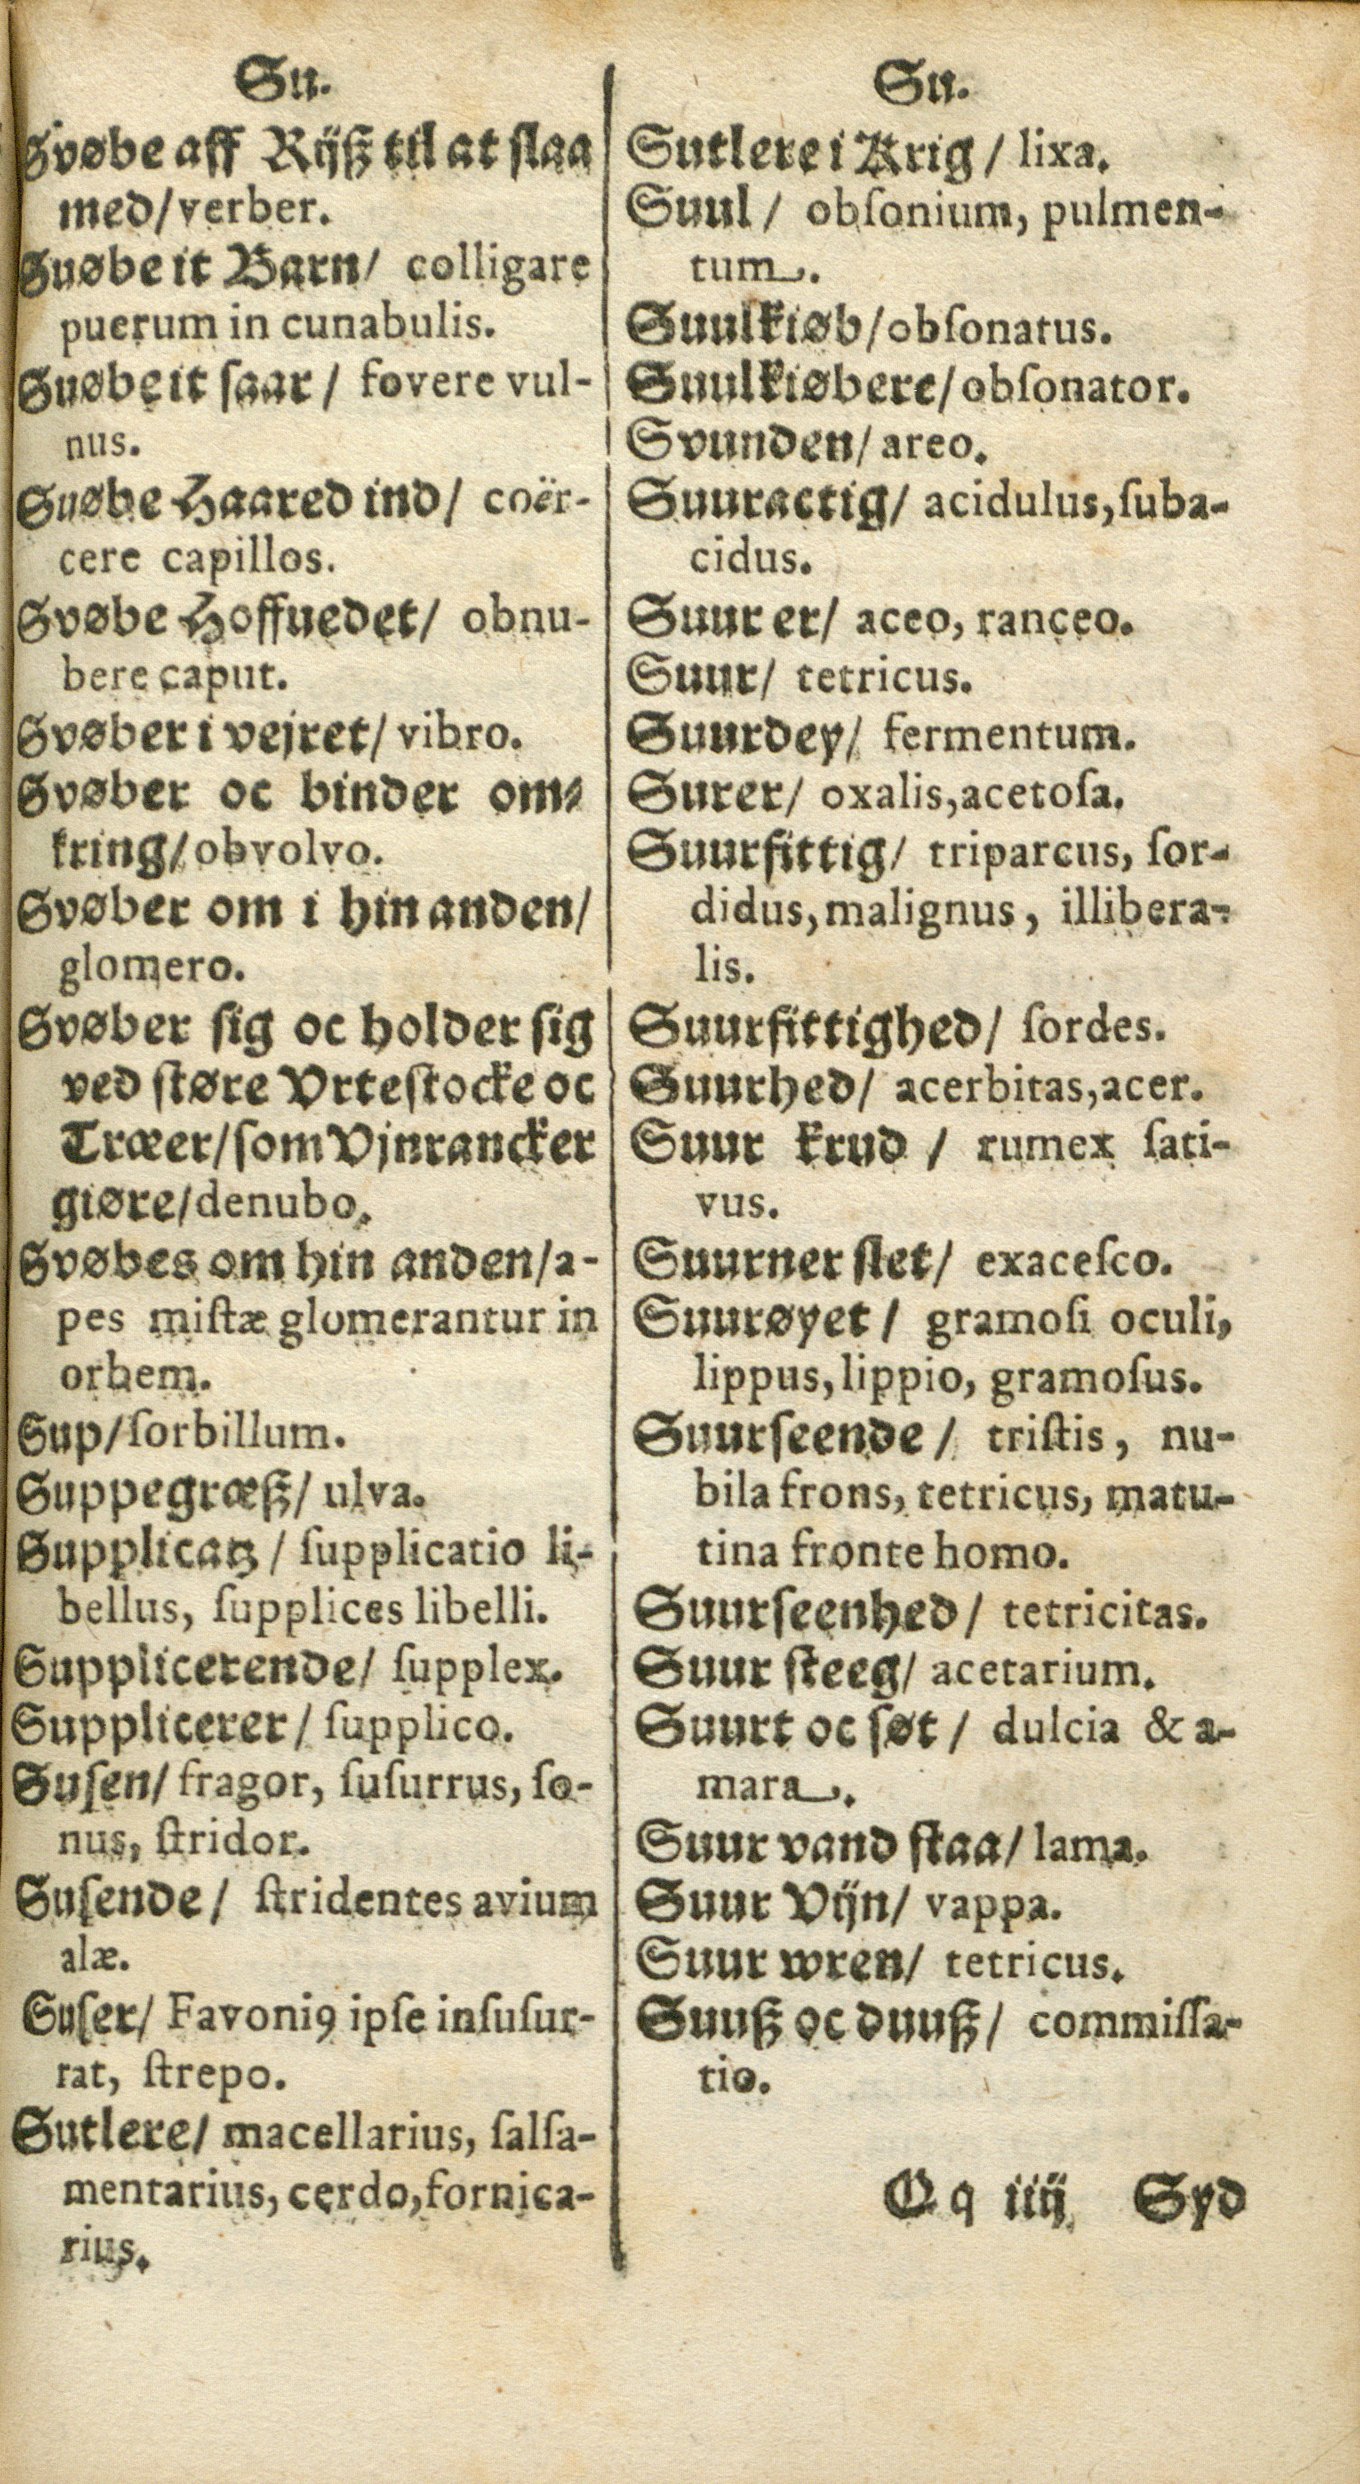 Su.
Svøbe aff Rijß til at slaa
med/ verber.
Suøbe it Barn/ colligare
puerum in cunabulis.
Suøbe it saar/ fovere vul-
nus.
Suøbe Haared ind/ coër-
cere capillos.
Svøbe Hoffuedet/ obnu-
bere caput.
Svøber i vejret/ vibro.
Svøber oc binder om-
kring/ obvolvo.
Svøber om i hin anden/
glomero.
Svøber sig oc holder sig
ved støre Vrtestocke oc
Træer/ som Vjnrancker
giøre/ denubo.
Svøbes om hin anden/ a-
pes mistæ glomerantur in
orbem.
Sup/ ſorbillum.
Suppegræß/ ulva.
Supplicatz/ ſupplicatio li-
bellus, ſupplices libelli.
Supplicerende/ ſupplex.
Supplicerer/ ſupplico.
Suſen/ fragor, ſuſurrus, ſo-
nus, ſtridor.
Suſende/ ſtridentes avium
alæ.
Suſer/ Favoniꝰ ipſe inſuſur-
rat, ſtrepo.
Sutlere/ macellarius, ſalſa-
mentarius, cerdo, fornica-
rius.
Su.
Sutlere i Krig/ lixa.
Suul/ obſonium, pulmen-
tum.
Suulkiøb/ obſonatus.
Suulkiøbere/ obſonator.
Svunden/ areo.
Suuractig/ acidulus, ſuba-
cidus.
Suur er/ aceo, ranceo.
Suur/ tetricus.
Suurdey/ fermentum.
Surer/ oxalis, acetoſa.
Suurfittig/ triparcus, ſor-
didus, malignus, illibera-
lis.
Suurfittighed/ ſordes.
Suurhed/ acerbitas, acer.
Suur krud/ rumex ſati-
vus.
Suurner slet/ exaceſco.
Suurøyet/ gramoſi oculi,
lippus, lippio, gramoſus.
Suurſeende/ triſtis, nu-
bila frons, tetricus, matu-
tina fronte homo.
Suurſeenhed/ tetricitas.
Suur ſteeg/ acetarium.
Suurt oc ſøt/ dulcia & a-
mara.
Suur vand ſtaa/ lama.
Suur Vijn/ vappa.
Suur wren/ tetricus.
Suuß oc duuß/ commiſſa-
tio.
Qq iiij Syd